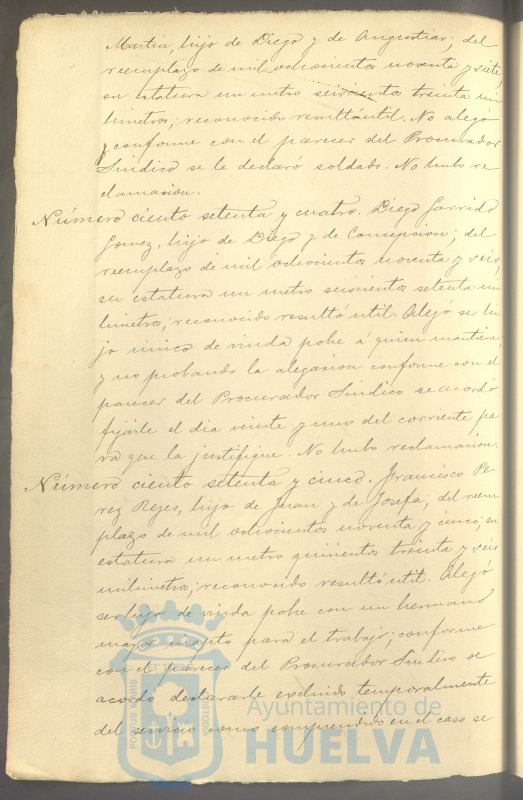 Martin, hijo de Diego y de Angustias; del
reemplazo de mil ochocientos noventa y siete,
su estatura un metro seiscientos treinta mi
limetros; reconocido resultó útil. No alegó
y conforme con el parecer del Procurador
Sindico se le declaró soldado. No hubo re
clamacion.
Número ciento setenta y cuatro. Diego Garrido
Gomez, hijo de Diego y de Concepcion; del
reemplazo de mil ochocientos noventa y seis,
su estatura un metro seiscientos setenta mi
limetros; reconocido resultó útil. Alegó ser hi
jo único de viuda pobre á quien mantiene,
y no probando la alegacion conforme con el
parecer del Procurador Sindico se acordó
fijarle el dia veinte y uno del corriente pa
ra que la justifique. No hubo reclamacion.
Número ciento setenta y cinco. Francisco Pe
rez Reyes, hijo de Juan y de Josefa; del reem
plazo de mil ochocientos noventa y cinco; su
estatura un metro quinientos treinta y seis
milimetros; reconocido resultó útil. Alegó
ser hijo de viuda pobre con un hermano
mayor inapto para el trabajo; conforme
con el parecer del Procurador Sindico se
acordó declararle excluido temporalmente
del servicio como comprendido en el caso se
PORTUS MARIS ET TERRAE CUSTODIA
Ayuntamiento de
HUELVA